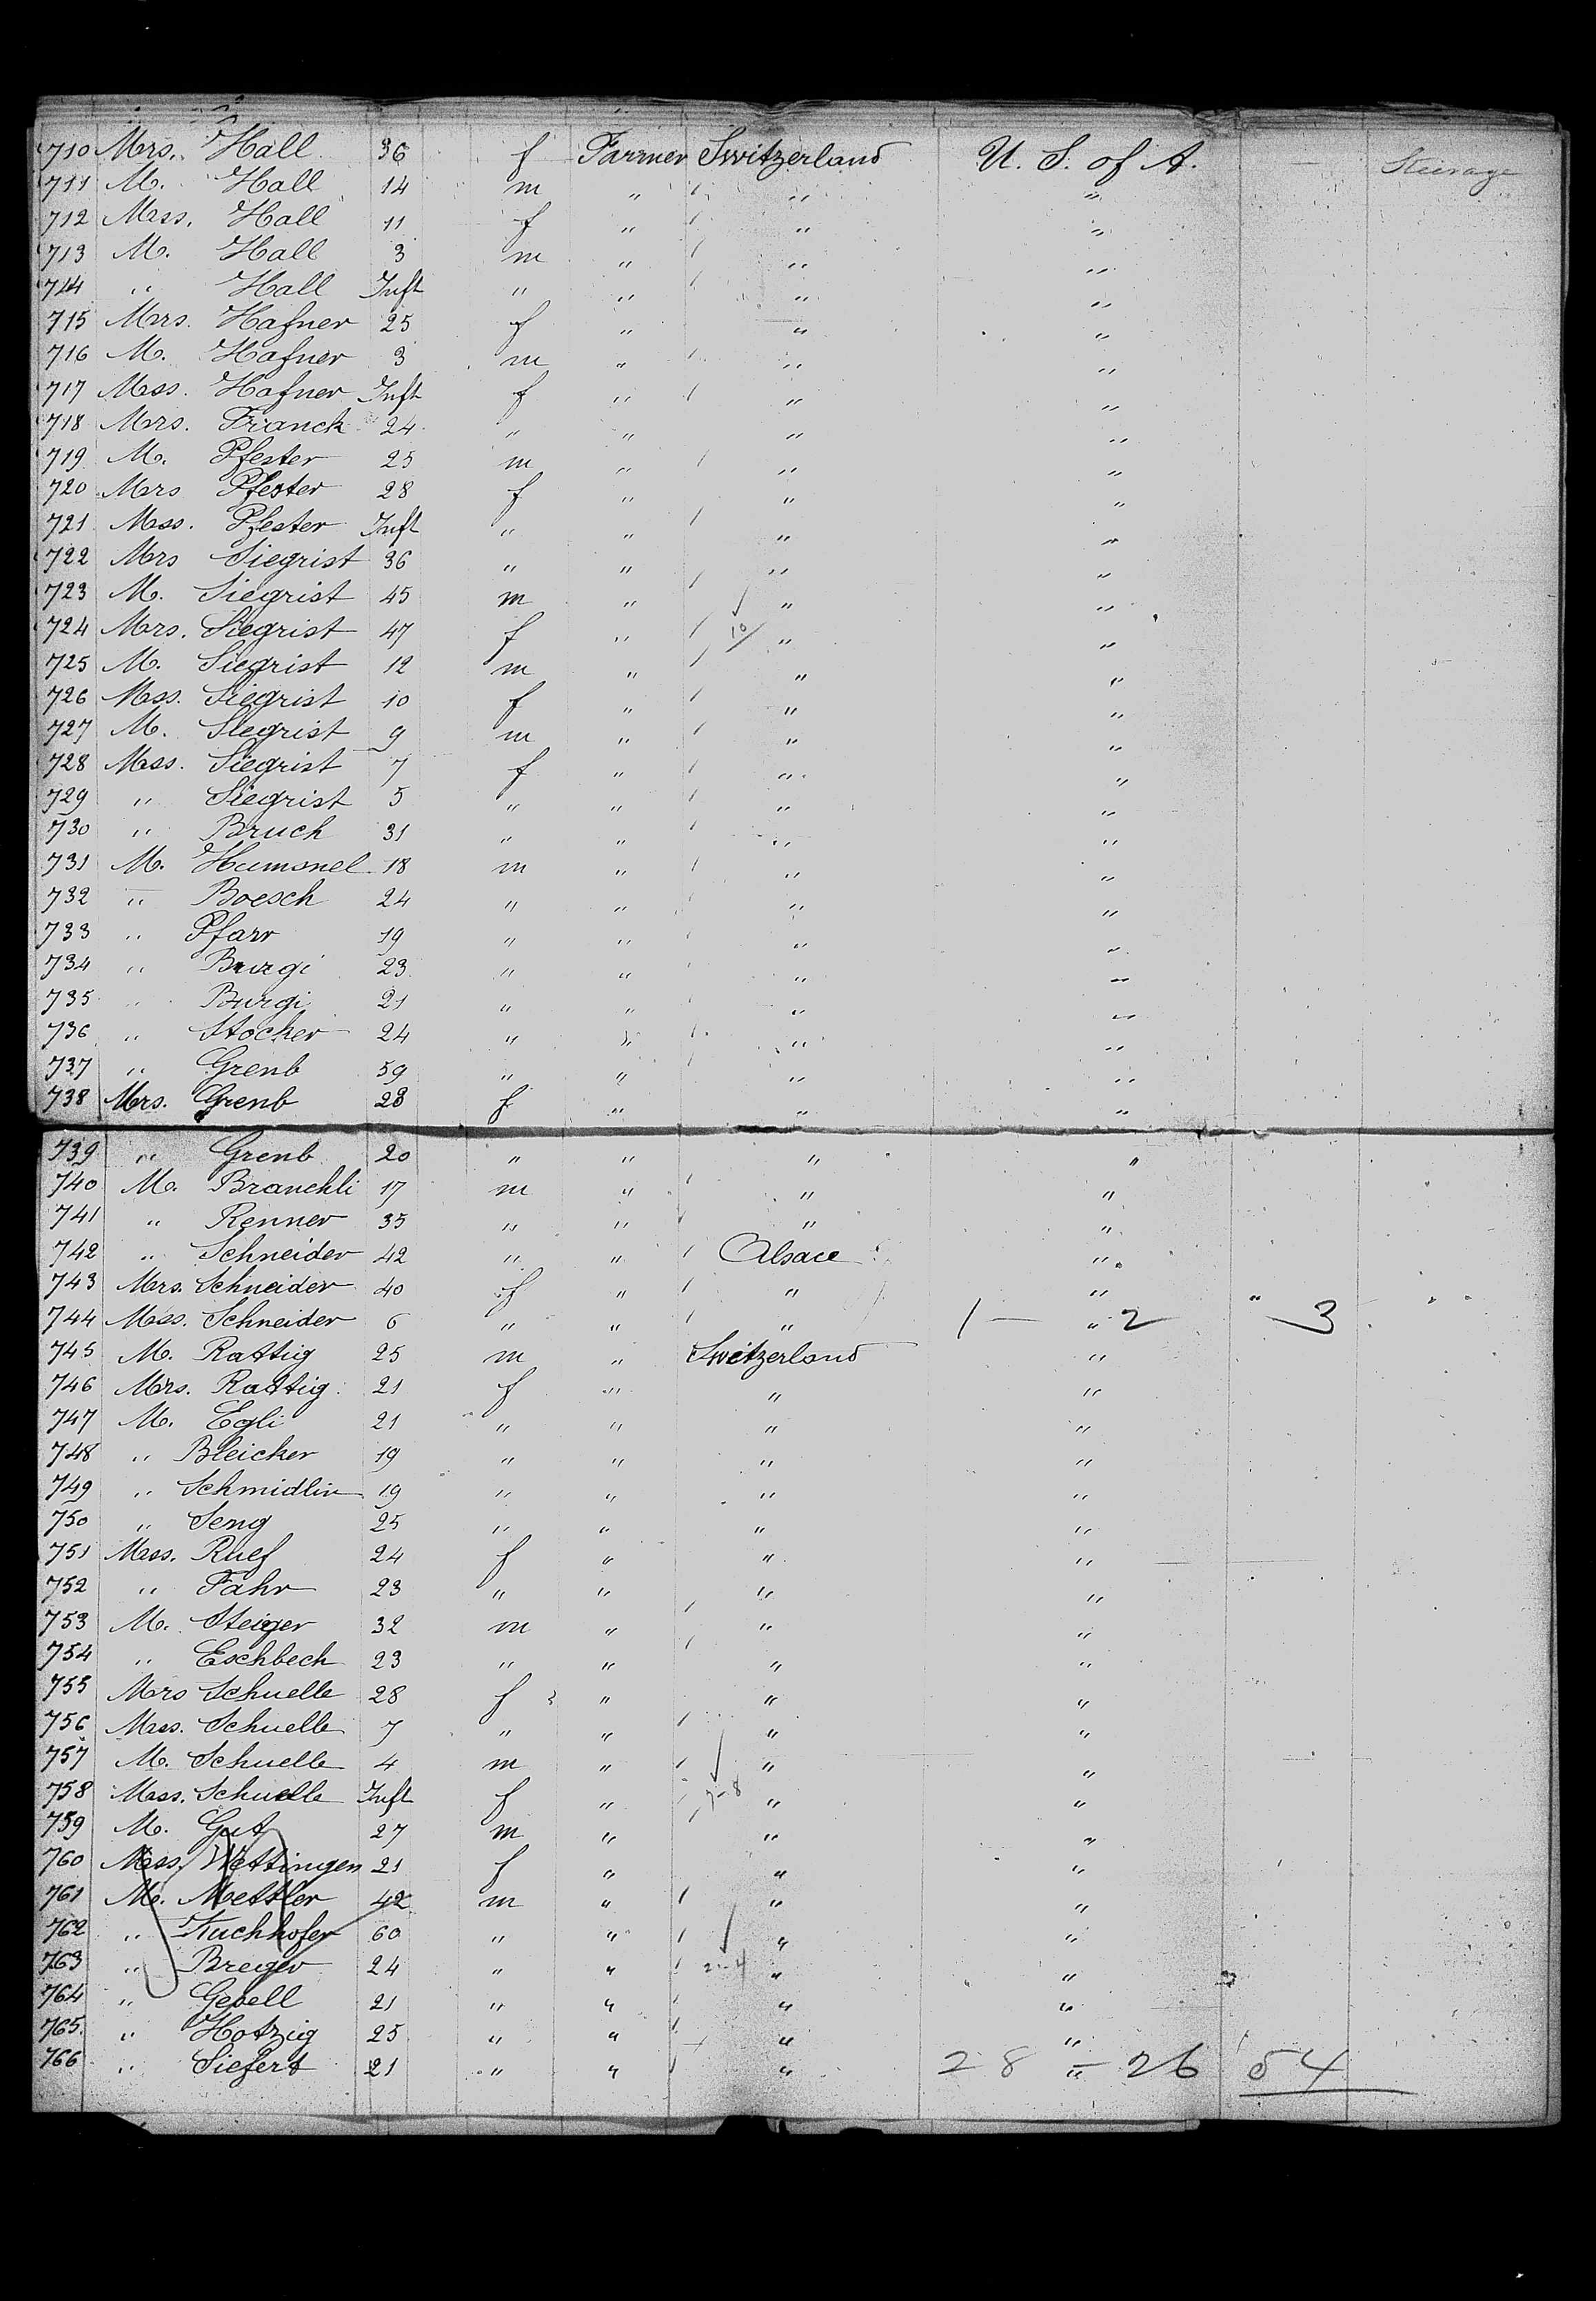 710 Mrs. Hall 36 f Farmer Switzerland U. S. of A. Steerage
711 M. Hall 14 m " " "
712 Mss. Hall 11 f " " "
713 M. Hall 3 m " " "
714 " Hall Inft " " " "
715 Mrs. Hafner 25 f " " "
716 M. Hafner 3 m " " "
717 Mss. Hafner Inft f " " "
718 Mrs. Franck 24 " " " "
719 M. Pfester 25 m " " "
720 Mrs Pfester 28 f " " "
721 Mss. Pfester Inft " " " "
722 Mrs Siegrist 36 " " " "
723 M. Siegrist 45 m " " "
724 Mrs. Siegrist 47 f " 10 " "
725 M. Siegrist 12 m " " "
726 Mss. Siegrist 10 f " " "
727 M. Siegrist 9 m " " "
728 Mss. Siegrist 7 f " " "
729 " Siegrist 5 " " " "
730 " Bruch 31 " " " "
731 M. Humsnel 18 m " " "
732 " Boesch 24 " " " "
733 " Pfarr 19 " " " "
734 " Burgi 23 " " " "
735 " Burgi 21 " " " "
736 " Stocker 24 " " " "
737 " Grenb 59 " " " "
738 Mrs. Grenb 28 f " " "
739 " Grenb 20 " " " "
740 M. Branchli 17 m " " "
741 " Renner 35 " " " "
742 " Schneider 42 " " Alsace "
743 Mrs. Schneider 40 f " " "
744 Mss. Schneider 6 " " " 1 — " 2 " 3
745 M. Rattig 25 m " Switzerland "
746 Mrs. Rattig 21 f " " "
747 M. Egli 21 " " " "
748 " Bleicker 19 " " " "
749 " Schmidlin 19 " " " "
750 " Seng 25 " " " "
751 Mss. Ruef 24 f " " "
752 " Fahr 23 " " " "
753 M. Steiger 32 m " " "
754 " Eschbech 23 " " " "
755 Mrs Schuelle 28 f " " "
756 Mss. Schuelle 7 " " " "
757 M. Schuelle 4 m " " "
758 Mss. Schuelle Inft f " 7-8 " "
759 M. Gut 27 m " " "
760 Mss. Wettingen 21 f " " "
761 M. Mettler 42 m " " "
762 " Kuchhofer 60 " " " "
763 " Breger 24 " " 2-4 " "
764 " Gesell 21 " " " "
765. " Hotzig 25 " " " "
766 " Siefert 21 " " " 28 — " 26 54